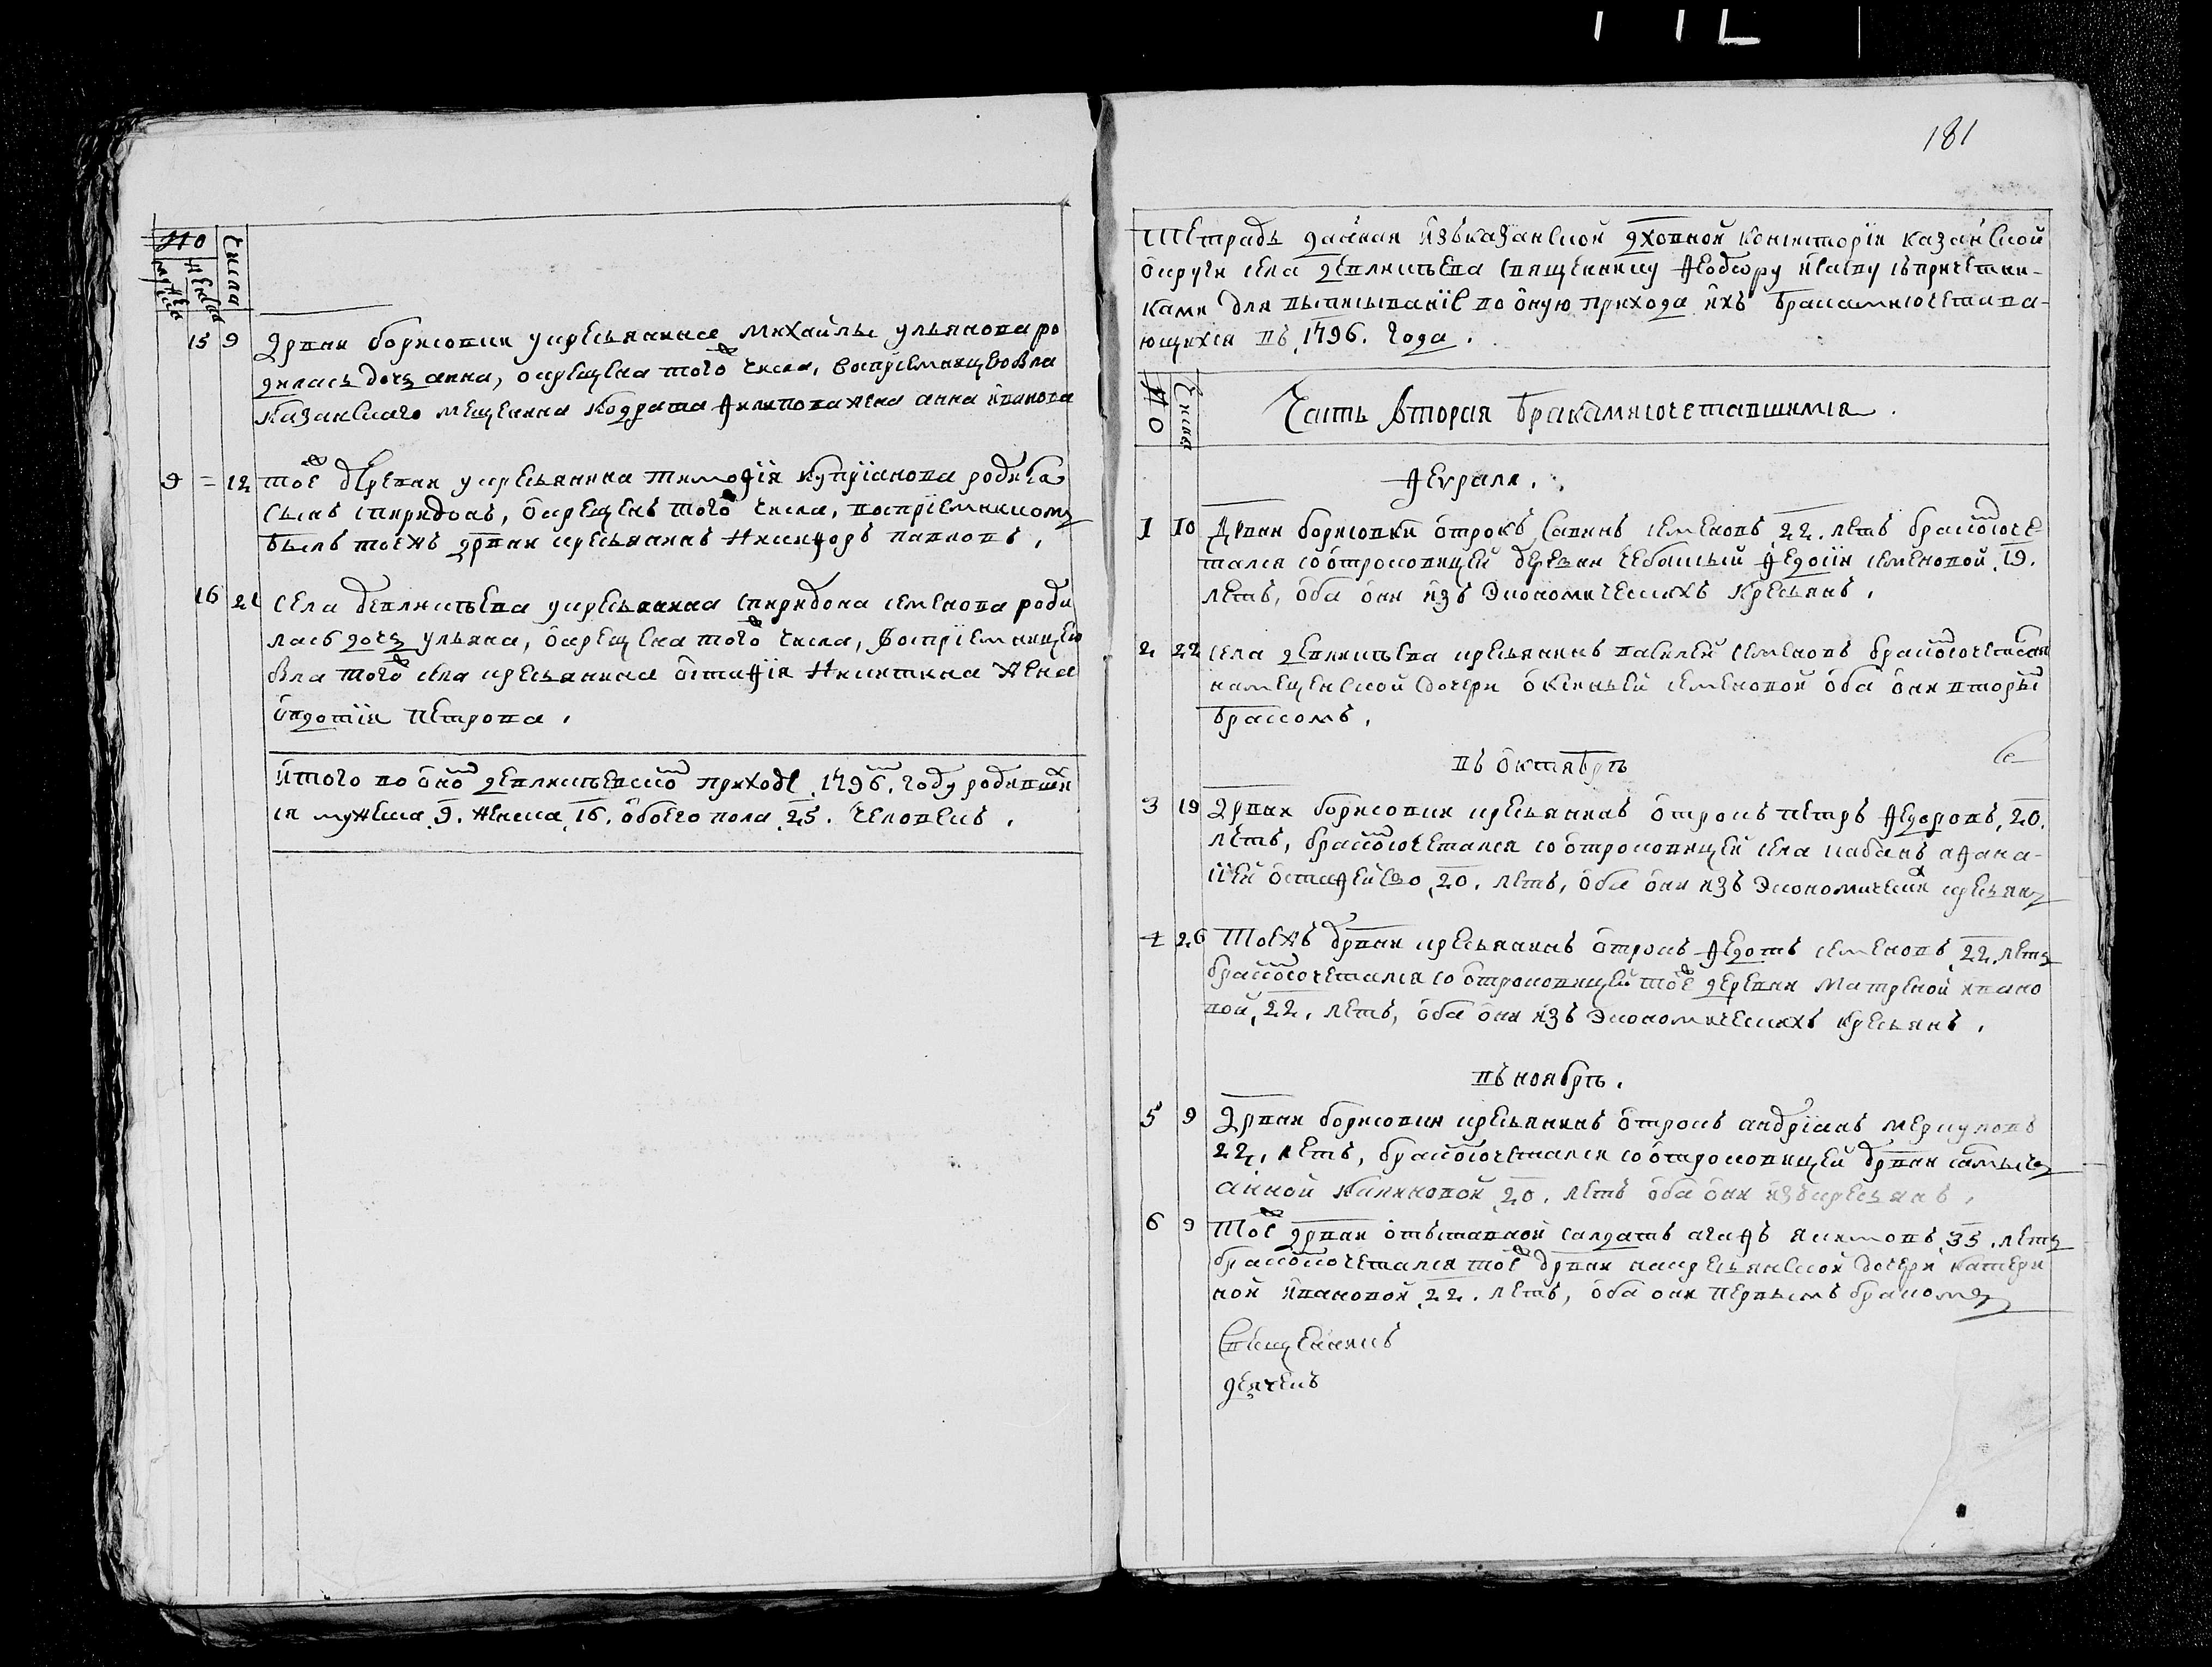 №
мужеска
женска
Числа
15 9 Дрвни борисовки у кресьянина михайлы ульянова ро
дилась дочь анна, окрещена того ж числа, восприемницею была
казанскаго мещенина кодрата филипова жена анна иванова
9 = 12 тое ж деревни у кресьянина тимофїя купрїанова родился
сынъ спиридонъ, окрещенъ того ж числа, воспрїемникомъ
былъ тоежъ дрвни кресьянинъ никифоръ павловъ.
16 21 села девликѣева у кресьянина спиридона семенова роди
лась дочь ульяна, окрещена того ж числа, воспрїемницею
была того ж села кресьянина остафїя никитина жена
овдотїя петрова.
итого во оном девликѣевском приходе 1796. году родивших
ся мужеска 9. женска 16. обоего пола 25. человекъ.
181
Тетрадь данная изъ казанской дховной консисторїи казанской
округи села девликѣева священнику феодору исаеву съ причетни-
ками для вписыванїе во оную прихода ихъ бракамисочетива-
ющихся въ 1796. года.
№
Числа
Часть вторая бракамисочетавшимся.
февраля.
1 10 Дрвни борисовки отрокъ савинъ семеновъ 22. летъ бракомсоче-
тался со отроковицей деревни чебаксый федосїи семеновой 19.
летъ, оба они изъ экономическихъ кресьянъ.
2 22 села девликѣева кресьянинъ василей семеновъ бракомсочетался
на мещенской дочери оксиньей семеновой оба они вторым
браккомъ.
въ октябрѣ
3 19 Дрвни борисовки кресьянинъ отрокъ петръ федоровъ, 20.
летъ, бракомсочетался со отроковицей села кабанъ афана-
сией остафейево 20. летъ, оба они изъ экономических кресьянъ
4 26 тоежъ дрвни кресьянинъ отрокъ федотъ семеновъ 22. летъ
бракомсочетался со отроковицей тое ж деревни матреной ивано
вой, 22. летъ, оба они изъ экономическихъ кресьянъ.
въ ноябрѣ.
5 9 Дрвни борисовки кресьянинъ отрокъ андрїанъ меркуловъ
22. летъ, бракомсочетался со отроковицей дрвни самых
анной калиновой 20. летъ оба они изъ кресьянъ.
6 9 тое ж дрвни отъставной салдатъ агафъ якимовъ 35. летъ
бракомсочетался тое ж дрвни на кресьянской дочери катери
ной ивановой 22. летъ, оба они первымъ бракомъ
Священникъ
дьячекъ